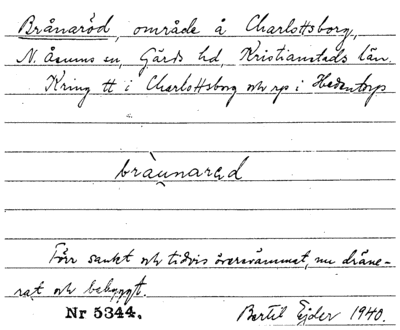 Brånaröd, område å Charlottsborg,
N. Åsums sn, Gärds hd, Kristianstads län.
Kring tt i Charlottsborg och rp i Hedentorp
bràunarǝd
Förr sankt och tidvis översvämmat, nu dräne-
rat och bebyggt.
Nr 5344. Bertil Ejder 1940.